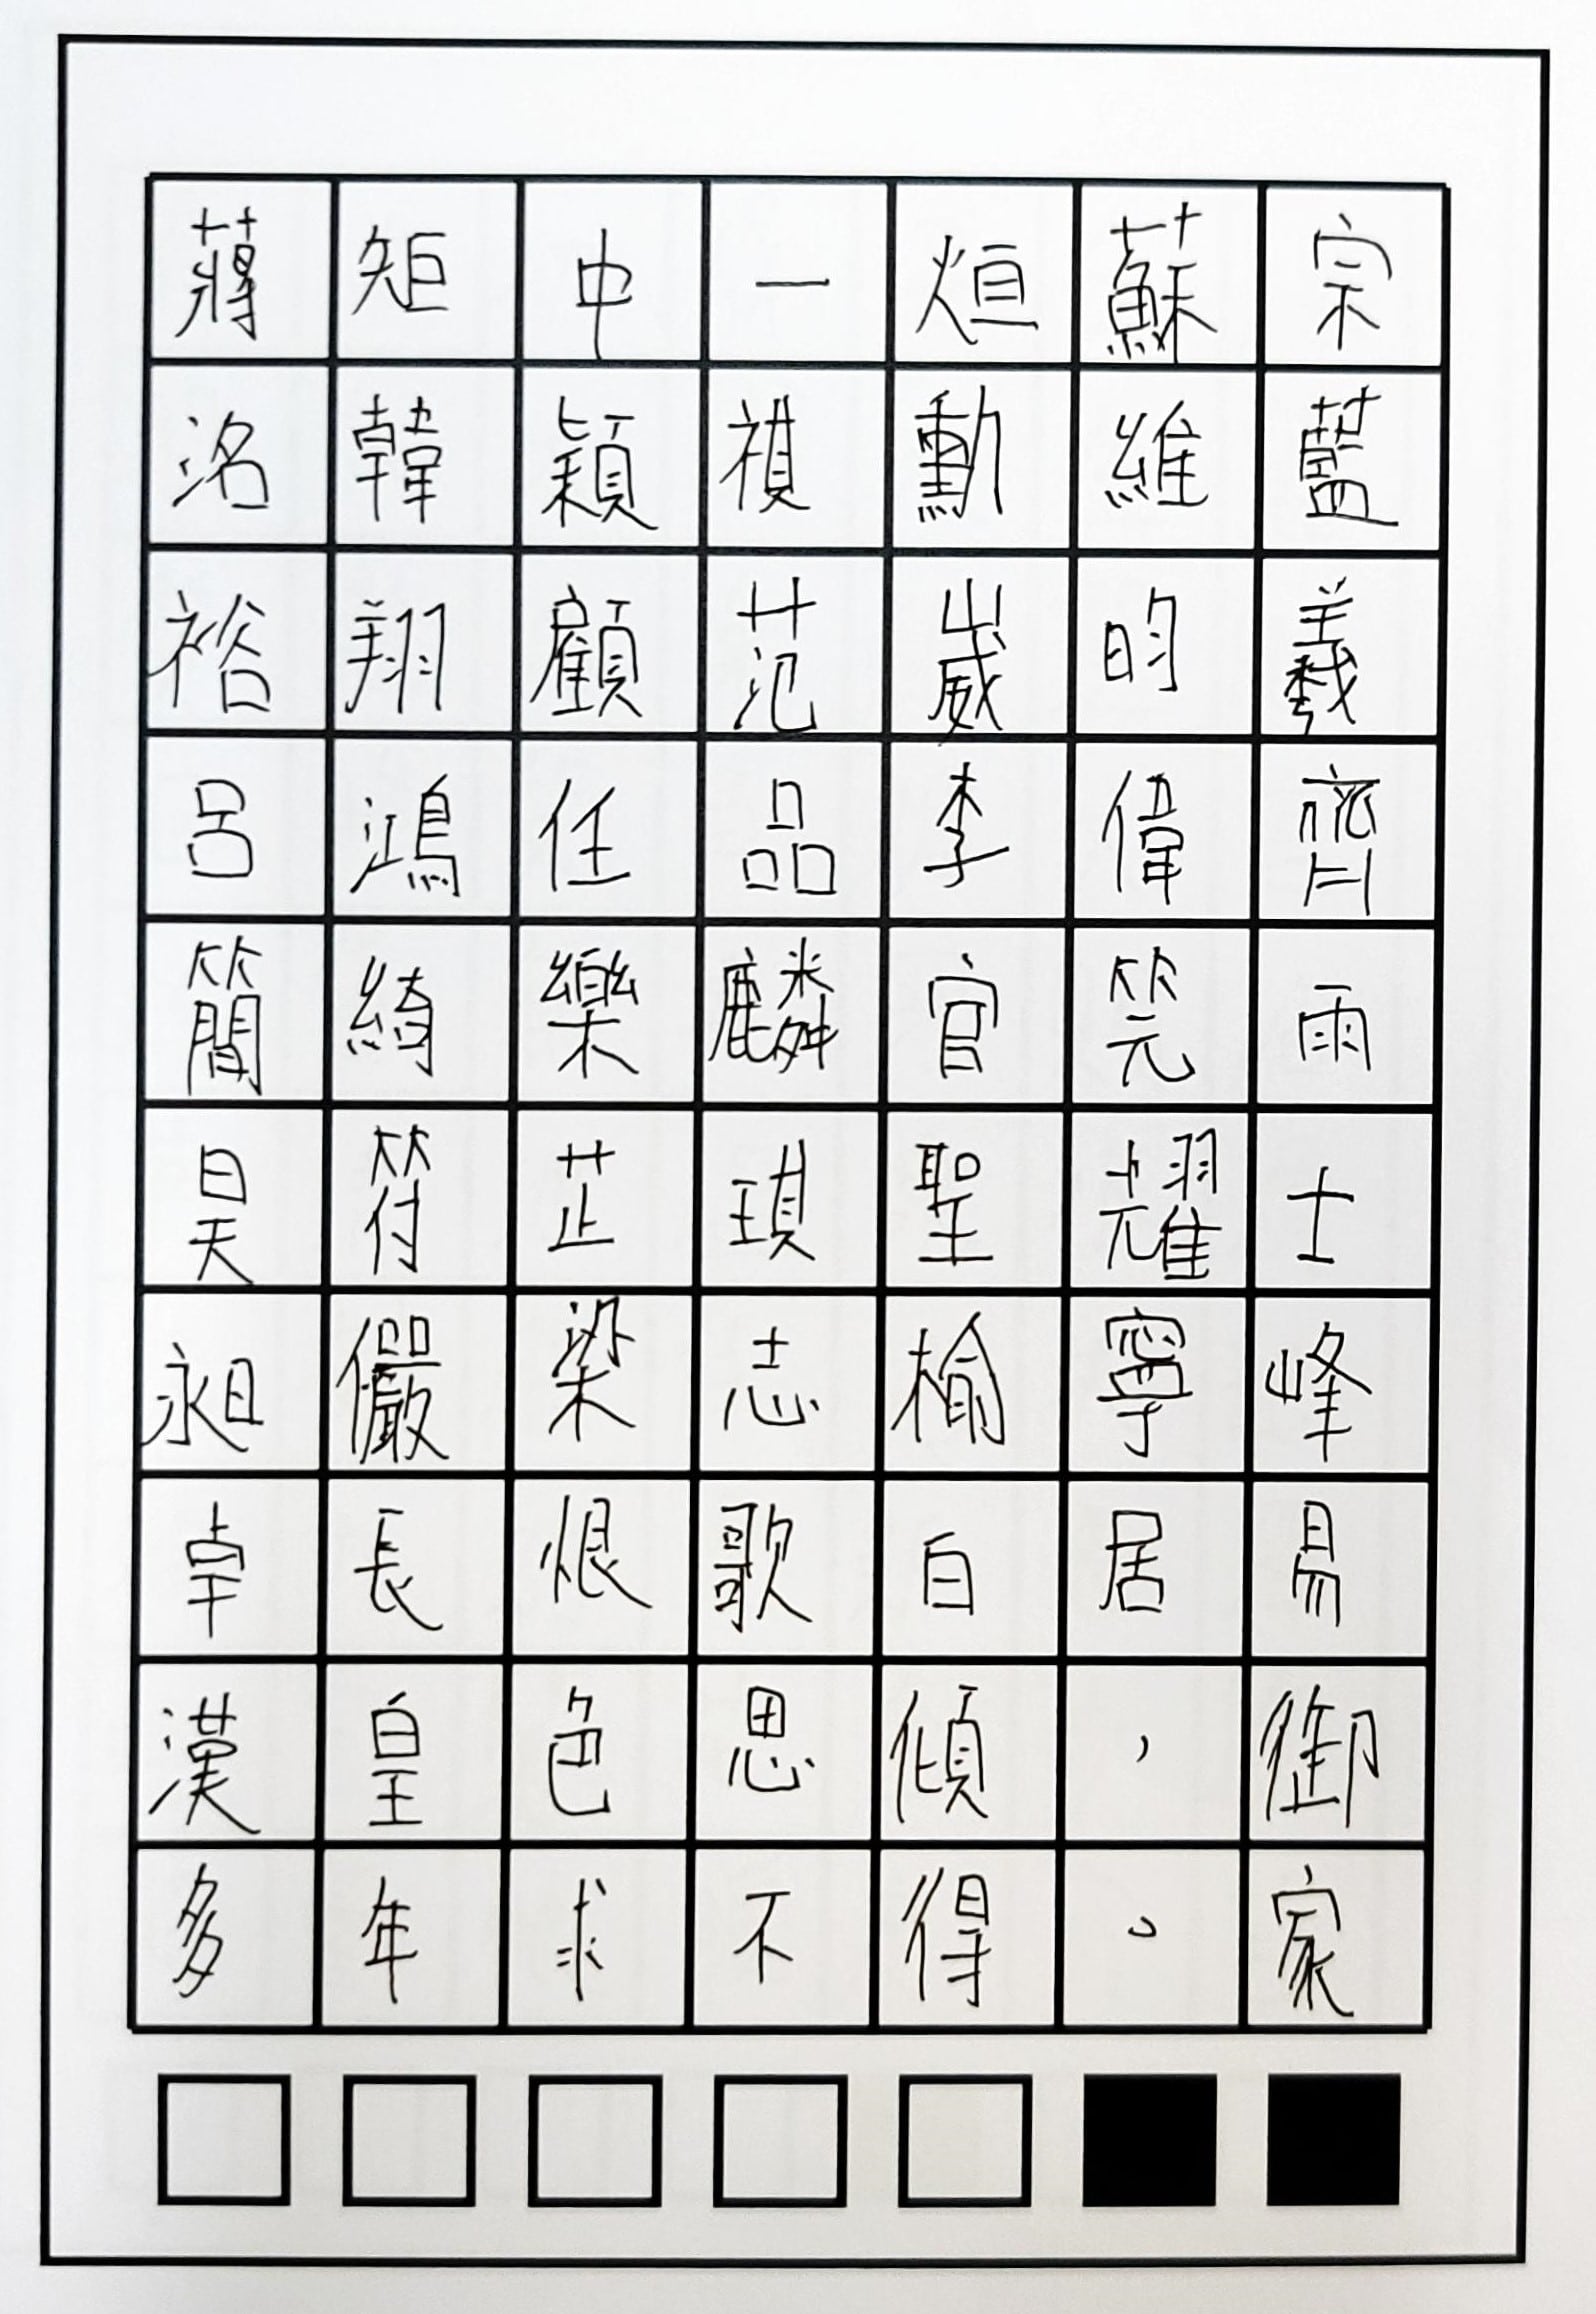 蔣矩中一烜蘇宗
洺韓穎禥勳維藍
裕翔顧范崴昀羲
呂鴻任品李偉齊
簡綺樂麟官笎雨
昊符芷琪聖耀士
昶儼梁志榆寧峰
卓長恨歌白居易
漢皇色思傾，御
多年求不得。家